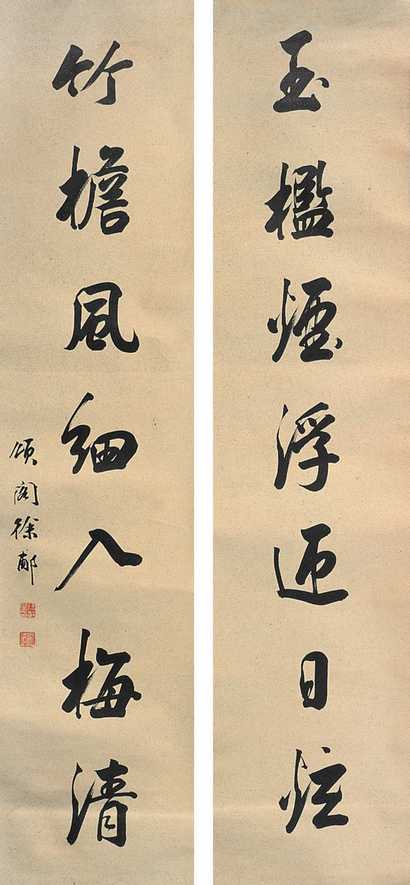 玉檻煙浮迎日炫
竹檐風細入梅清
頌閣徐郙